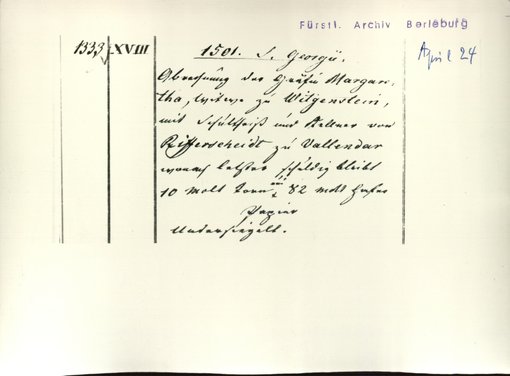 Fürstl. Archiv Berleburg
1333 XVIII
1501. S. Georgii.
April 24
Abrechnung der Gräfin Margare-
tha, Witwe zu Witgenstein,
mit Schultheiß und Kellner von
Reifferscheidt zu Vallendar
wonach letzter schuldig bleibt
10 malt Korn, 82 malt Hafer
Papier
Untersiegelt.